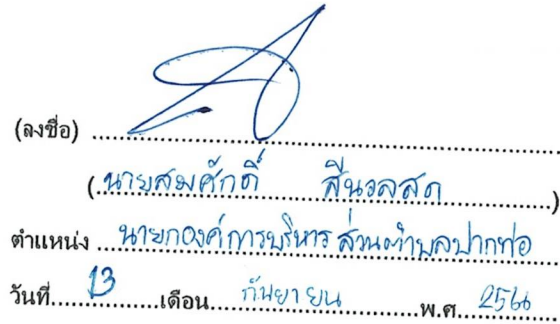 (ลงชื่อ)
(นายสมศักดิ์ สีนวลสด)
ตำแหน่ง นายกองค์การบริหารส่วนตำบลปากท่อ
วันที่ 13 เดือน กันยายน พ.ศ. 2566